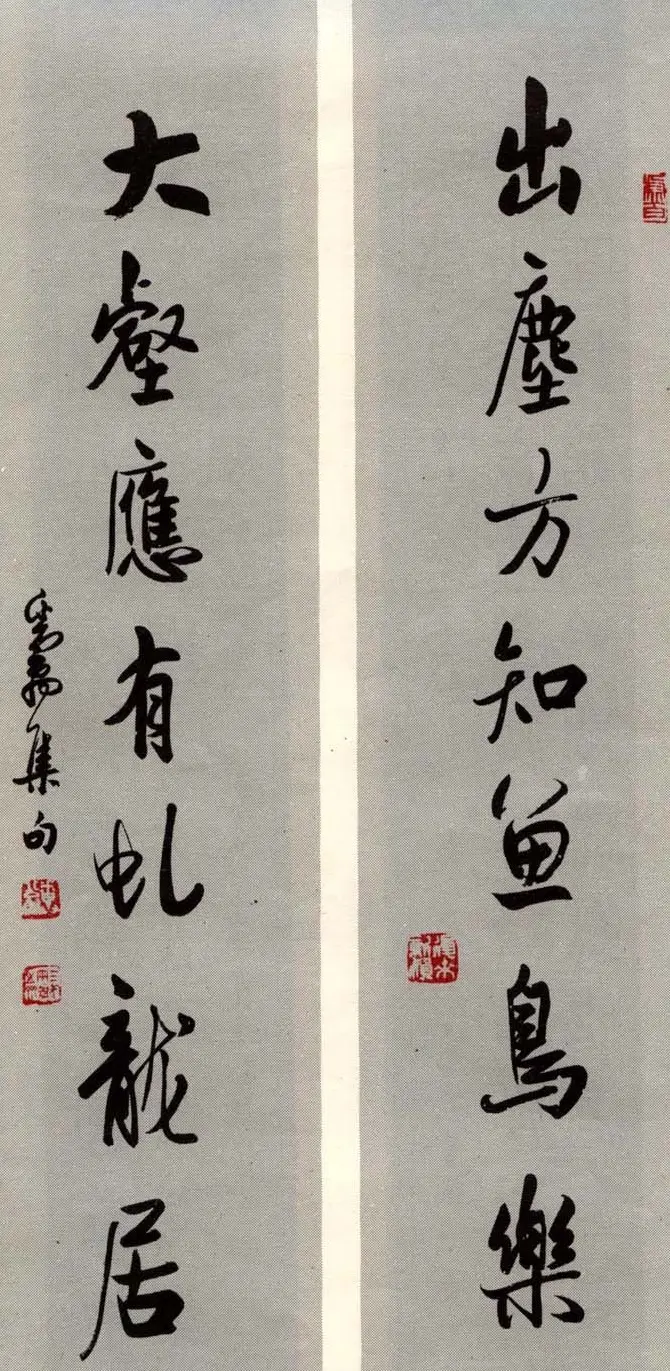 出塵方知魚鳥樂
大壑應有虬龍居
集句